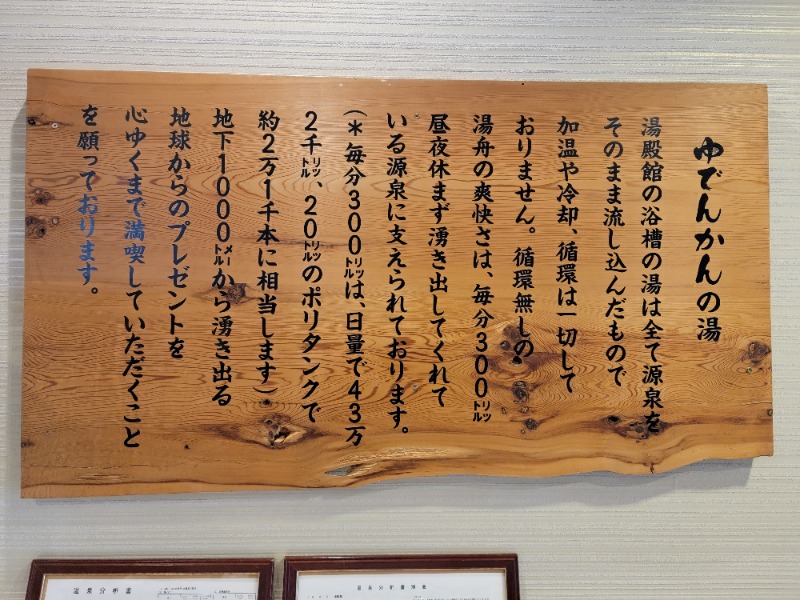 ゆでんかんの湯
湯殿館の浴槽の湯は全て源泉を
そのまま流し込んだもので
加温や冷却、循環は一切して
おりません。循環無しの
湯舟の爽快さは、毎分300㍑
昼夜休まず湧き出してくれて
いる源泉に支えられております。
(＊毎分300㍑は、日量で43万
2千㍑、20㍑のポリタンクで
約2万1千本に相当します)
地下1000㍍から湧き出る
地球からのプレゼントを
心ゆくまで満喫していただくこと
を願っております。
温泉分析書